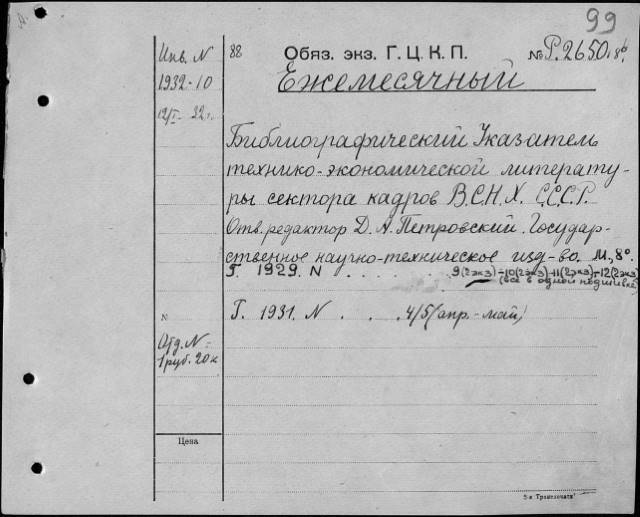 99
Инв. N
1932-10
12/I- 32 г.
88
Обяз. экз. Г. Ц. К. П.
№ Р.2650. 8б.
Ежемесячный
Библиографический Указатель
технико-экономической литерату-
ры сектора кадров В.С.Н.Х. С.С.С.Р.
Отв. редактор Д. А. Петровский. Государ-
ственное научно-техническое изд-во. М., 8°.
Г. 1929. N . . . . . 9(2экз)-10(2экз)-11(2экз)-12(2экз)
(все в одной подшивке)
Г. 1931. N . . . 4/5(апр.-май)
N
Отд. N.-
1 руб. 20 к
Цена